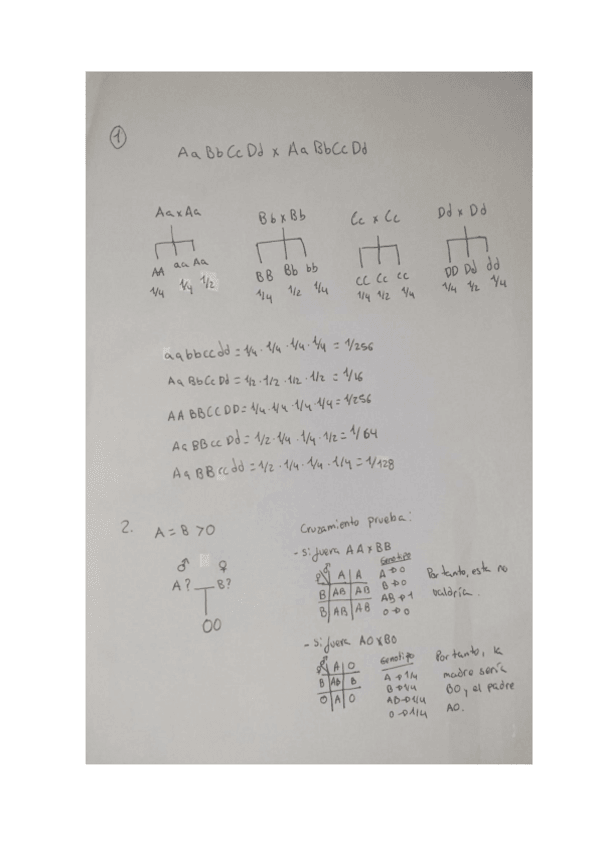 1
Aa Bb Cc Dd x Aa Bb Cc Dd
Aa x Aa Bb x Bb Cc x Cc Dd x Dd
AA aa Aa BB Bb bb CC Cc cc DD Dd dd
1/4 1/4 1/2 1/4 1/2 1/4 1/4 1/2 1/4 1/4 1/2 1/4
aabbccdd = 1/4 · 1/4 · 1/4 · 1/4 = 1/256
Aa BbCc Dd = 1/2 · 1/2 · 1/2 · 1/2 = 1/16
AA BBCC DD = 1/4 · 1/4 · 1/4 1/4 = 1/256
Aa BB cc Dd = 1/2 · 1/4 · 1/4 · 1/2 = 1/64
Aa BB cc dd = 1/2 · 1/4 · 1/4 · 1/4 = 1/128
2. A = B > O
♂ ♀
A? B?
OO
Cruzamiento prueba:
- si fuera AA x BB
♀ ♂ A A
B AB AB
B AB AB
Genotipo
A → 0
B → 0
AB → 1
O → 0
Por tanto, este no
valdría.
- si fuera AO x BO
♀ ♂ A O
B AB B
O A O
Genotipo
A → 1/4
B → 1/4
AB → 1/4
O → 1/4
Por tanto, la
madre sería
BO y el padre
AO.